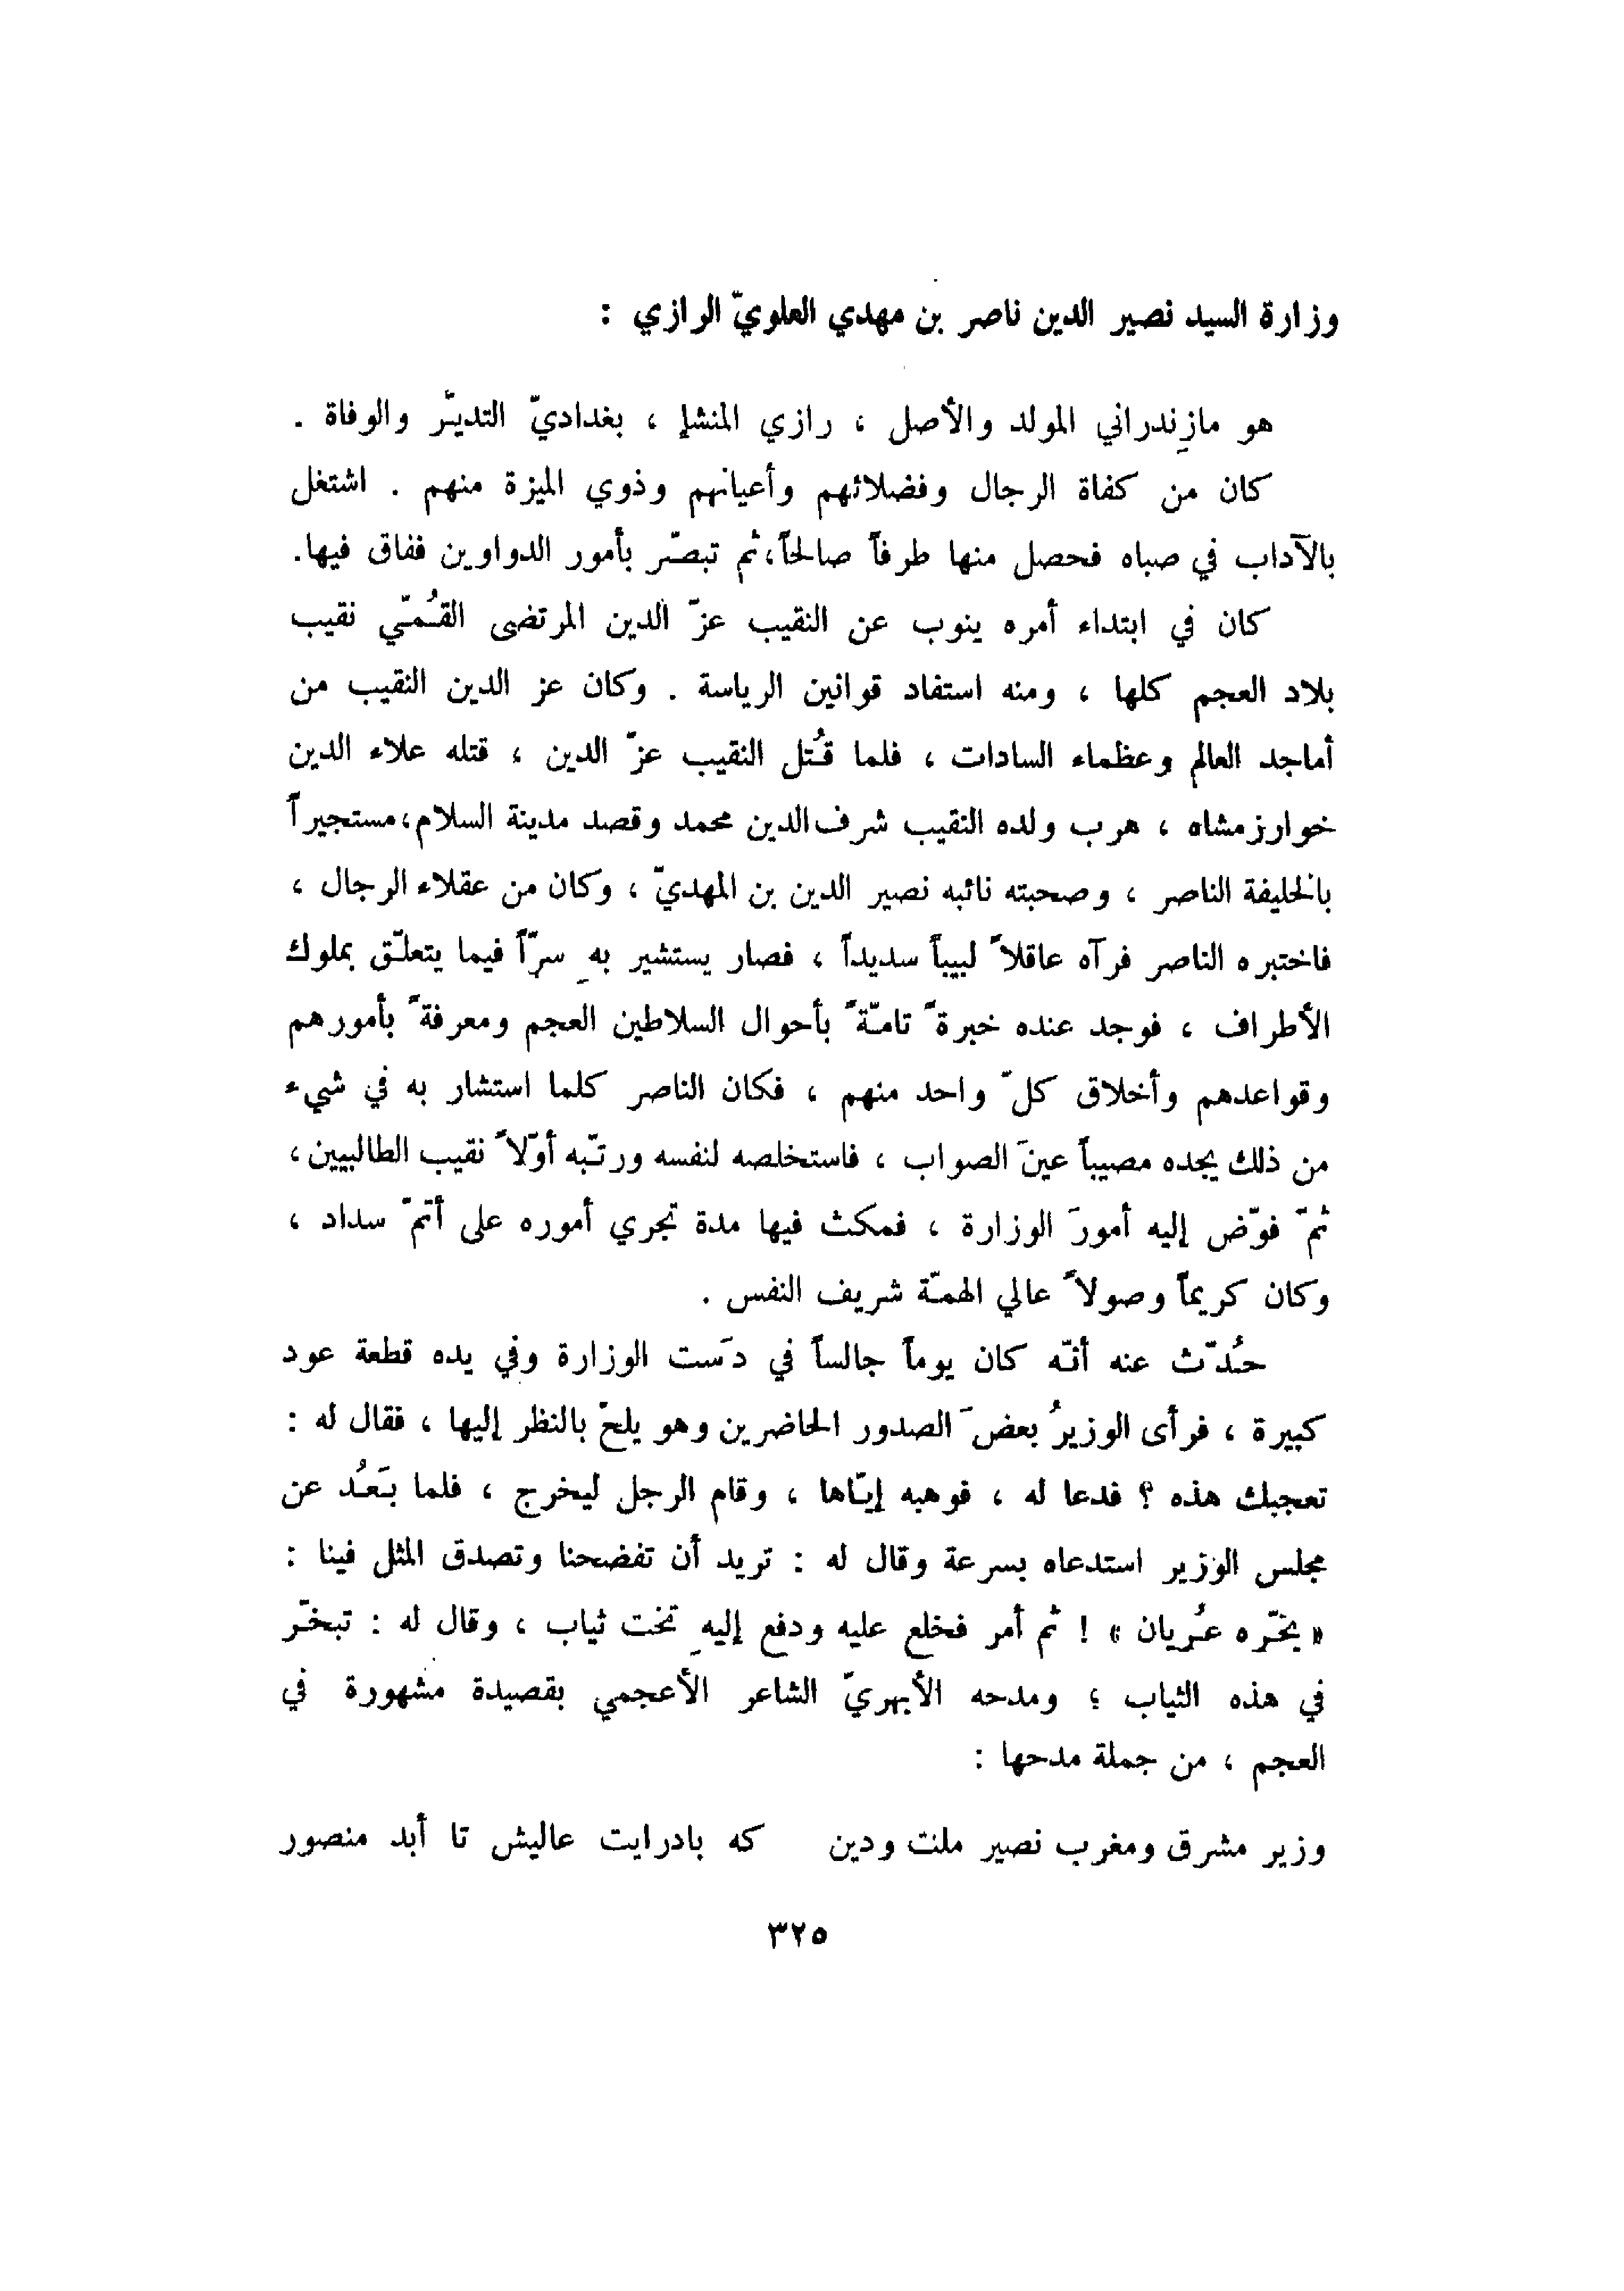 وزارة السيد نصير الدين ناصر بن مهدي العلويّ الرازي :
هو مازِندراني المولد والأصل ، رازي المنشإ ، بغداديّ التديّر والوفاة .
كان من كفاة الرجال وفضلائهم وأعيانهم وذوي الميزة منهم . اشتغل
بالآداب في صباه فحصل منها طرفاً صالحاً،ثم تبصّر بأمور الدواوين ففاق فيها.
كان في ابتداء أمره ينوب عن النقيب عزّ الدين المرتضى القُمّي نقيب
بلاد العجم كلها ، ومنه استفاد قوانين الرياسة . وكان عز الدين النقيب من
أماجد العالم وعظماء السادات ، فلما قُتل النقيب عزّ الدين ، قتله علاء الدين
خوارزمشاه ، هرب ولده النقيب شرف الدين محمد وقصد مدينة السلام،مستجيراً
بالخليفة الناصر ، وصحبته نائبه نصير الدين بن المهديّ ، وكان من عقلاء الرجال ،
فاختبره الناصر فرآه عاقلاً لبيباً سديداً ، فصار يستشير به سرّاً فيما يتعلّق بملوك
الأطراف ، فوجد عنده خبرةً تامّةً بأحوال السلاطين العجم ومعرفةً بأمورهم
وقواعدهم وأخلاق كلّ واحد منهم ، فكان الناصر كلما استشار به في شيء
من ذلك يجده مصيباً عينَ الصواب ، فاستخلصه لنفسه ورتّبه أوّلاً نقيب الطالبيين ،
ثمّ فوّض إليه أمورَ الوزارة ، فمكث فيها مدة تجري أموره على أتمّ سداد ،
وكان كريماً وصولاً عالي الهمّة شريف النفس .
حُدّث عنه أنّه كان يوماً جالساً في دَست الوزارة وفي يده قطعة عود
كبيرة ، فرأى الوزيرُ بعضَ الصدور الحاضرين وهو يلحّ بالنظر إليها ، فقال له :
تعجبك هذه ؟ فدعا له ، فوهبه إيّاها ، وقام الرجل ليخرج ، فلما بَعُد عن
مجلس الوزير استدعاه بسرعة وقال له : تريد أن تفضحنا وتصدق المثل فينا :
« بخّره عُريان » ! ثم أمر فخلع عليه ودفع إليه تخت ثياب ، وقال له : تبخّر
في هذه الثياب ؛ ومدحه الأبهريّ الشاعر الأعجمي بقصيدة مشهورة في
العجم ، من جملة مدحها :
وزير مشرق ومغرب نصير ملت ودين كه بادرايت عاليش تا أبد منصور
٣٢٥